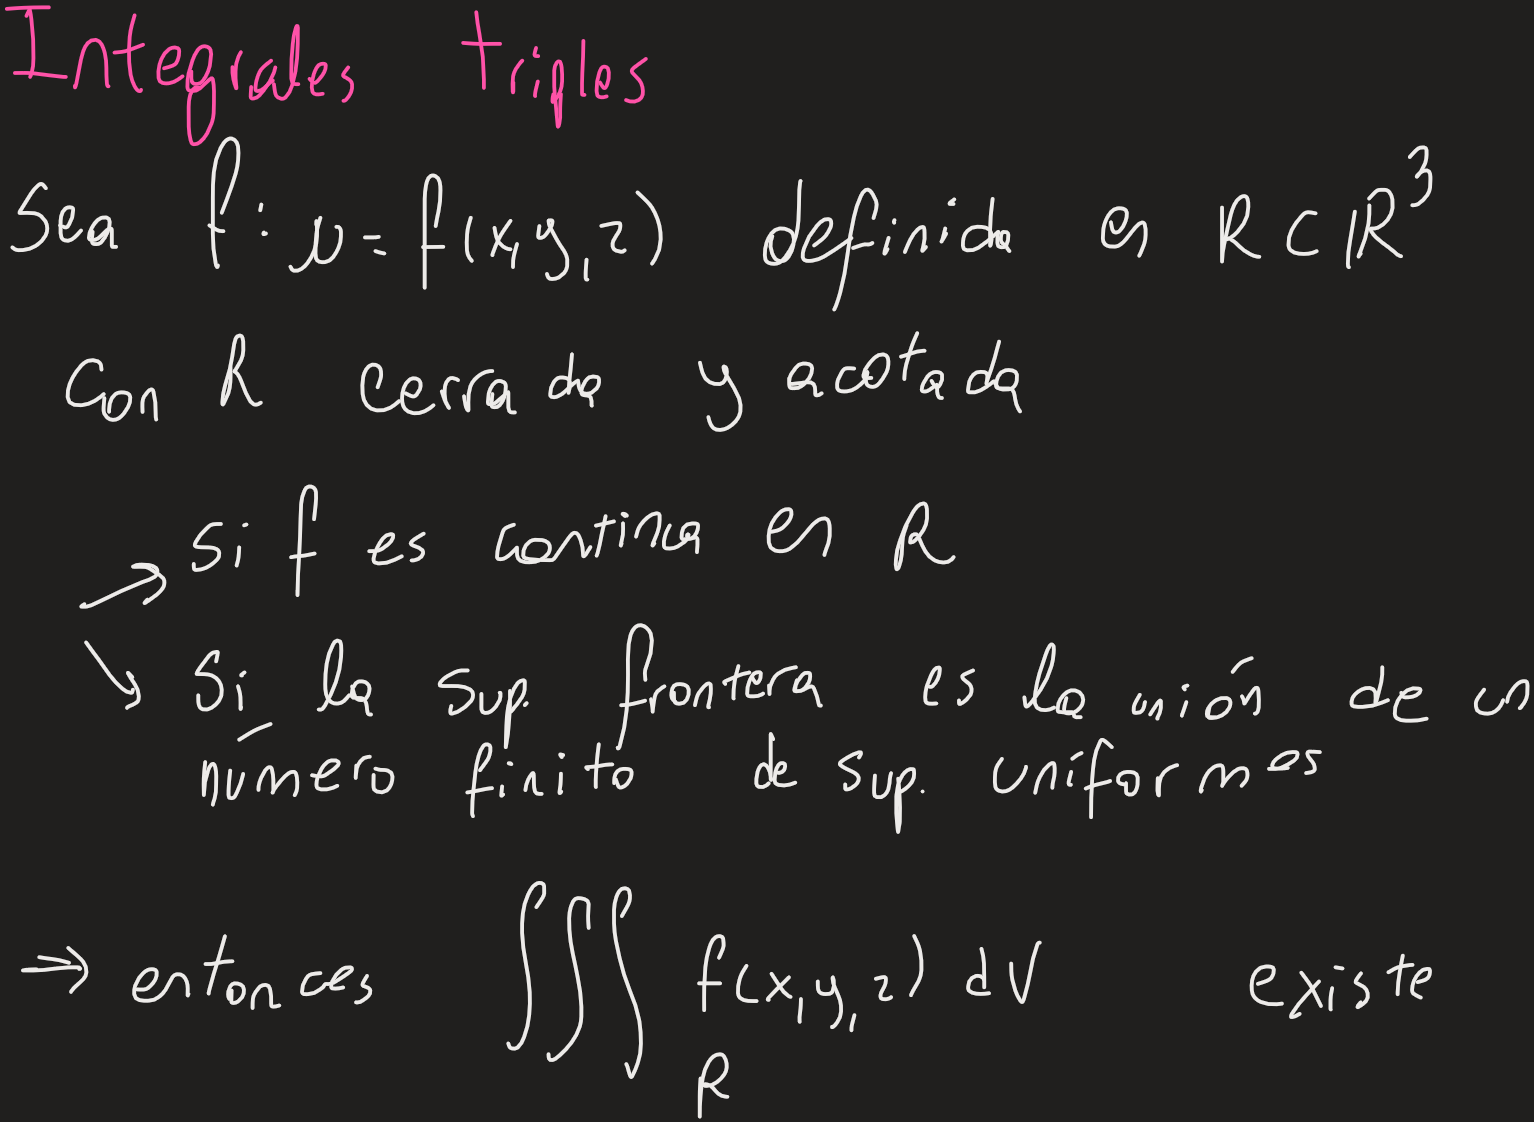 Integrales triples
Sea f: w = f(x,y,z) definida en R ⊂ ℝ³
con R cerrada y acotada
→ Si f es continua en R
↘ Si la sup. frontera es la unión de un
número finito de sup. uniformes
⇒ entonces ∭_R f(x,y,z) dV existe